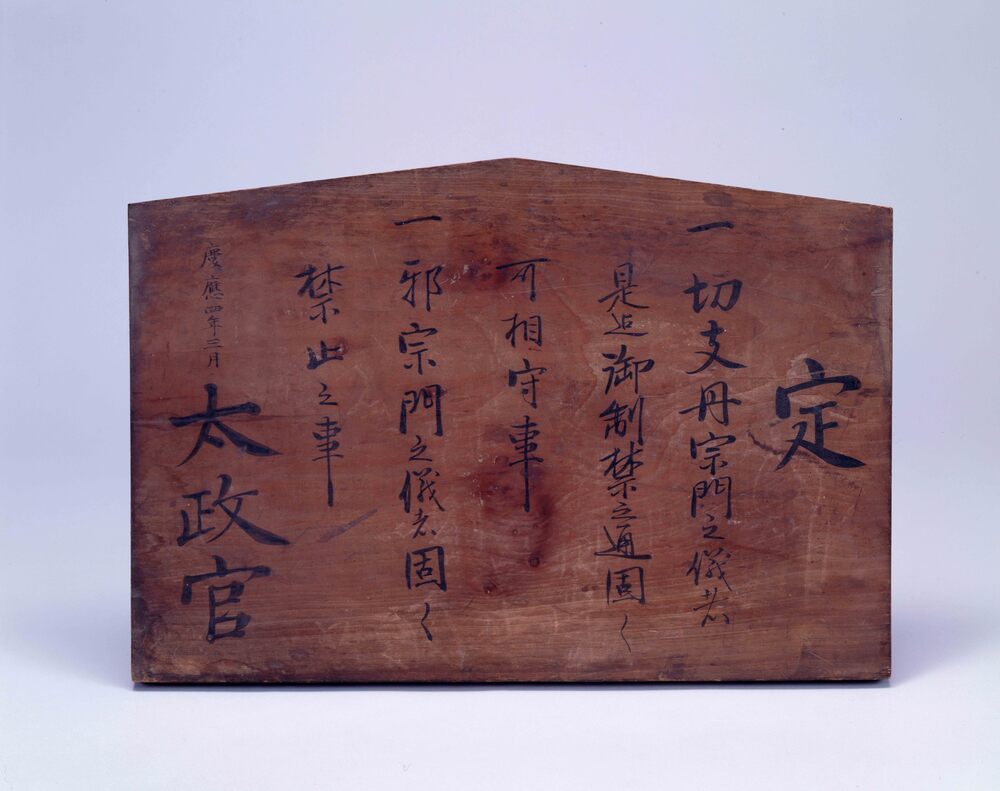 定
一切支丹宗門之儀者
是迄御制禁之通固く
可相守事
一邪宗門之儀者固く
禁止之事
慶應四年三月
太政官